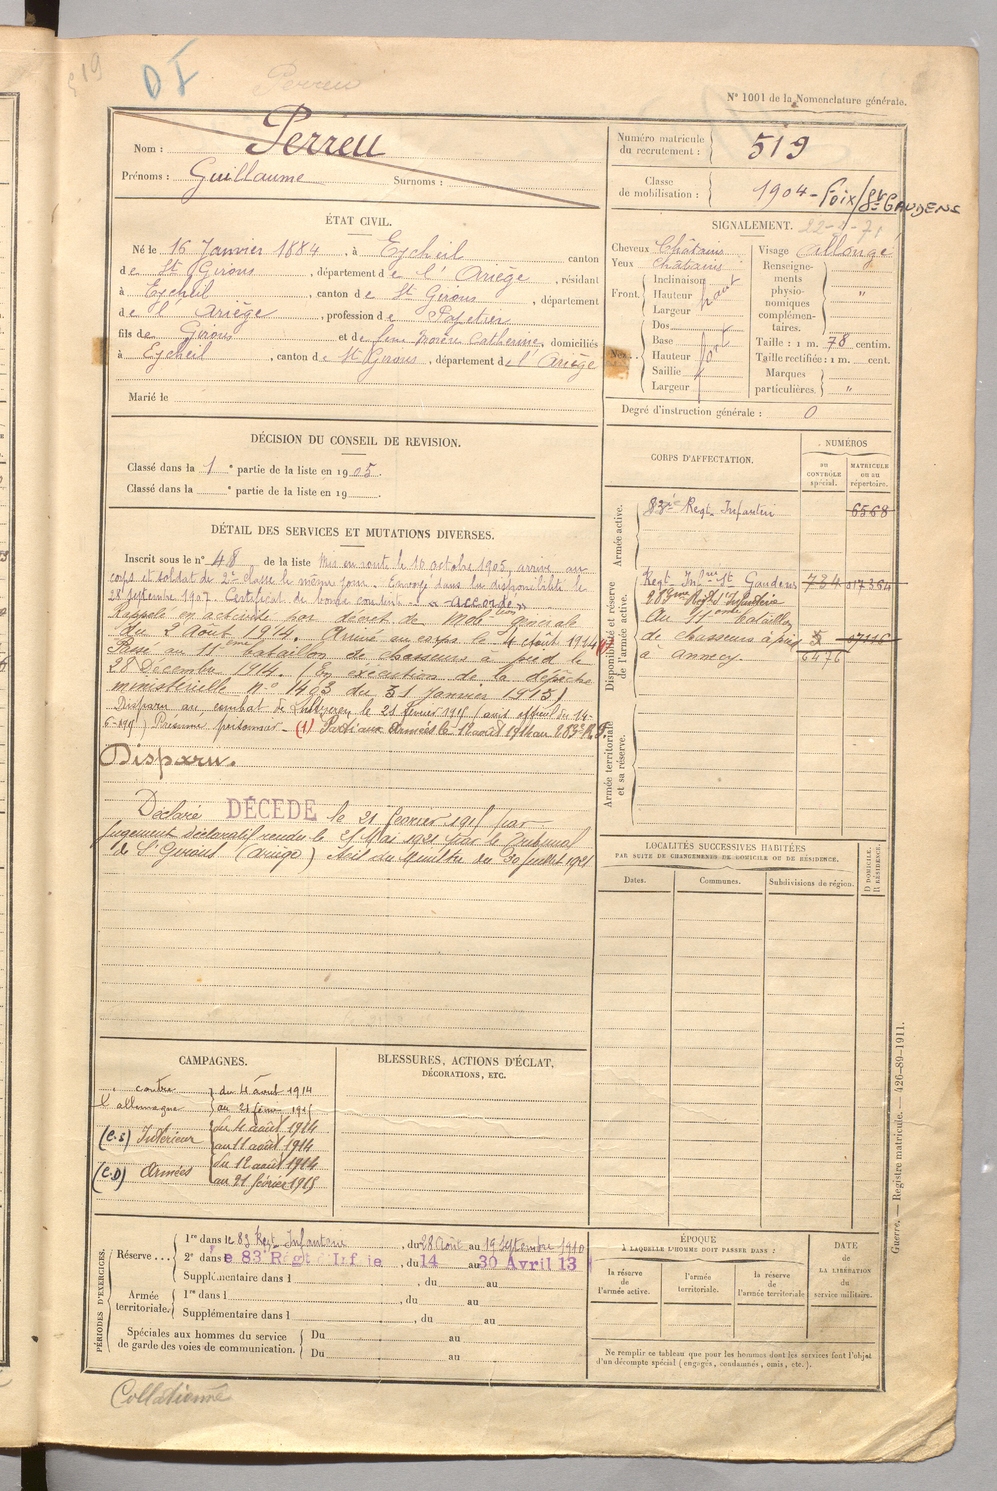 519
DI
Perreu
N° 1001 de la Nomenclature générale.
Nom : Perreu
Prénoms : Guillaume Surnoms :
Numéro matricule du recrutement : 519
Classe de mobilisation : 1904 - Foix/St GAUDENS
ÉTAT CIVIL.
Né le 16 Janvier 1884, à Eycheil canton
de St Girons, département de l'Ariège, résidant
à Eycheil, canton de St Girons, département
de l'Ariège, profession de Papetier
fils de Girons et de Catherine, domiciliés
à Eycheil, canton de St Girons, département de l'Ariège
Marié le
SIGNALEMENT.
Cheveux Châtains
Yeux châtains
Front. Inclinaison
Hauteur haut
Largeur
Nez. Dos
Base
Hauteur fort
Saillie
Largeur
Visage allongé
Renseignements physionomiques complémentaires. "
Taille : 1 m. 78 centim.
Taille rectifiée : 1 m. cent.
Marques particulières. "
Degré d'instruction générale : 0
DÉCISION DU CONSEIL DE REVISION.
Classé dans la 1e partie de la liste en 1905.
Classé dans la e partie de la liste en 19 .
DÉTAIL DES SERVICES ET MUTATIONS DIVERSES.
Inscrit sous le n° 48 de la liste Mis en route le 10 octobre 1905, arrivé au
corps et soldat de 2e classe le même jour. Envoyé dans la disponibilité le
28 Septembre 1907. Certificat de bonne conduite "accordé"
Rappelé en activité par décret de Mobtion Générale
du 2 Août 1914. Arrivé au corps le 4 août 1914 (1)
Passé au 11eme bataillon de chasseurs à pied le
28 Décembre 1914. (En exécution de la dépêche
ministérielle n° 1403 du 31 janvier 1915)
Disparu au combat de le 21 février 1915 (avis officiel du 14-
6-1915) Présumé prisonnier - (1) Parti aux Armées le 12 août 1914 au 283e R.I.
Disparu.
Déclaré DÉCÉDÉ le 21 février 1915 par
jugement déclaratif rendu le 25 Mai 1921 par le Tribunal
de St Girons (Ariège) Avis du Ministre du 30 juillet 1921
CORPS D'AFFECTATION.
NUMÉROS
AU CONTRÔLE spécial.
MATRICULE ou au répertoire.
Armée active.
83ie Regt Infanterie 6568
Disponibilité et réserve de l'armée active.
Regt Infrie St Gaudens 784 017364
283eme Regt d'Infanterie
Au 11eme bataillon
de chasseurs à pied
à Annecy. 6476
Armée territoriale et sa réserve.
LOCALITÉS SUCCESSIVES HABITÉES
PAR SUITE DE CHANGEMENTS DE DOMICILE OU DE RÉSIDENCE.
Dates. Communes. Subdivisions de région. D DOMICILE. R RÉSIDENCE.
CAMPAGNES.
contre l'allemagne du 4 août 1914
au 21 février 1915
(C.S) Intérieur du 4 août 1914
au 11 août 1914
(C.D) Armées du 12 août 1914
au 21 février 1915
BLESSURES, ACTIONS D'ÉCLAT,
DÉCORATIONS, ETC.
PÉRIODES D'EXERCICES.
Réserve... 1re dans le 83 Regt Infanterie, du 28 Août au 19 Septembre 1910
2e dans le 83 Regt Inf ie, du 14 au 30 Avril 13
Supplémentaire dans l , du au
Armée territoriale. 1re dans l , du au
Supplémentaire dans l , du au
Spéciales aux hommes du service de garde des voies de communication. Du au
Du au
ÉPOQUE
À LAQUELLE L'HOMME DOIT PASSER DANS :
la réserve de l'armée active.
l'armée territoriale.
la réserve de l'armée territoriale
DATE de LA LIBÉRATION du service militaire.
Ne remplir ce tableau que pour les hommes dont les services font l'objet
d'un décompte spécial (engagés, condamnés, omis, etc.).
Guerre. — Registre matricule. — 426-89-1911.
Collationné